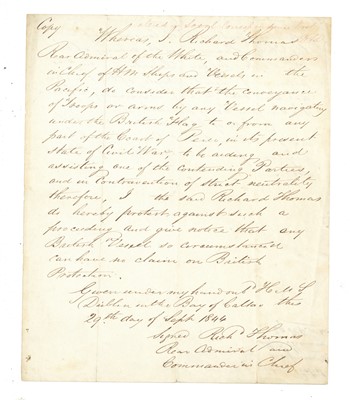 Copy
Whereas, I, Richard Thomas
Rear Admiral of the White, and Commander
in Chief of H M Ships and Vessels in the
Pacific, do consider that the conveyance
of Troops or arms by any Vessel navigating
under the British Flag to or from any
part of the Coast of Peru, in its present
state of Civil War, to be aiding and
assisting one of the contending Parties,
and in contravention of strict neutrality
therefore, I the said Richard Thomas
do hereby protest against such a
proceeding and give notice that any
British Vessel so circumstanced
can have no claim on British
Protection.
Given under my hand on bd H.M.S
Dublin in the Bay of Callao this
29th day of Sept 1844
Signed Richd Thomas
Rear Admiral and
Commander in Chief